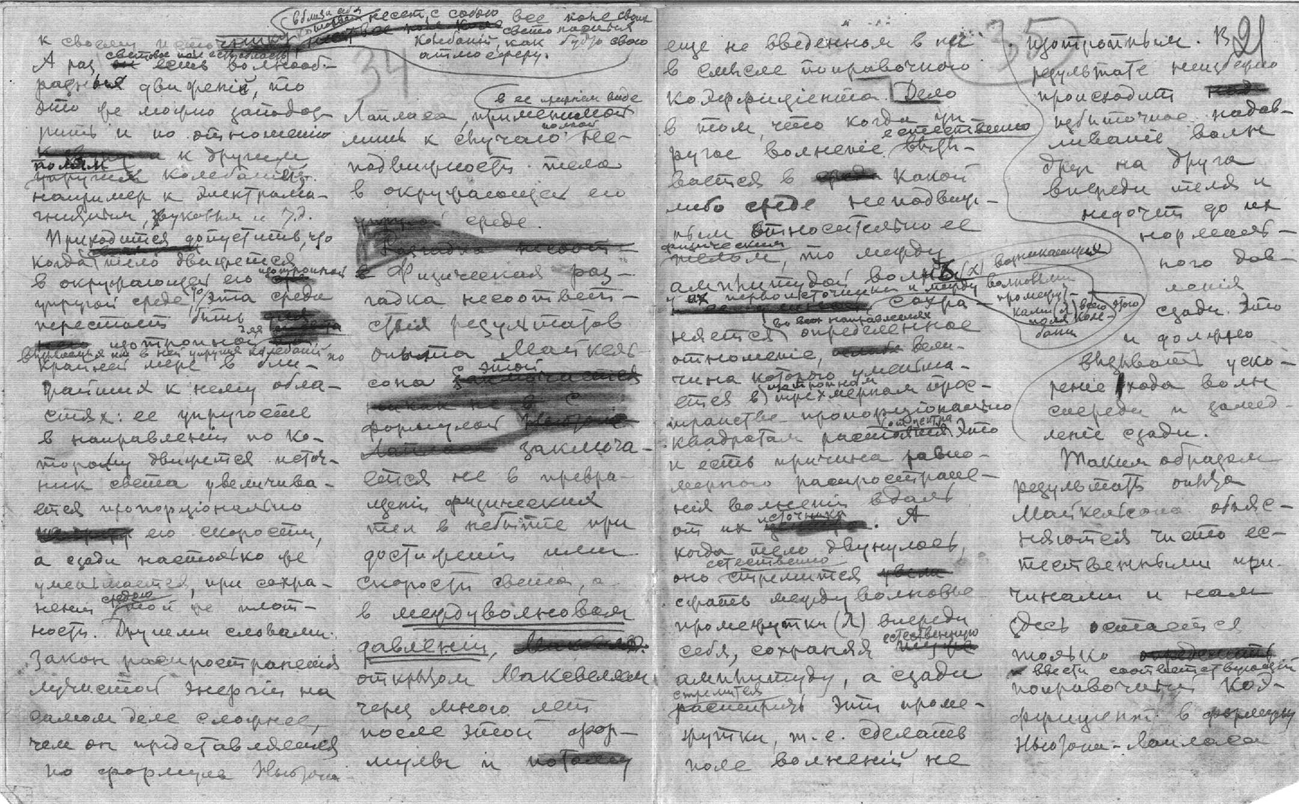 к своему источнику,
вблизи его
которая несет с собою все поле своих
колебаний, как будто свою
атмосферу.
А раз свет есть волнооб-
разныя движенія, то
это же можно заподоз-
рить и по отношению
к другим
упругим колебаніям
например к электрома-
гнитным, звуковым и т.д.
Приходится допустить, что
когда тело движется
в окружающей его изотропной
упругой среде, то эта среда
перестает быть
изотропной для
упругих колебаний по
крайней мере в бли-
жайших к нему обла-
стях: ее упругость
в направлении по ко-
торому движется источ-
ник света увеличива-
ется пропорціонально
его скорости,
а сзади настолько же
уменьшается, при сохра-
нении средою той же плот-
ности. Другими словами.
Закон распространенія
лучистой энергіи на
самом деле сложнее,
чем он представляется
по формуле Ньютона-
34
в ее прежнем виде
Лапласа, применимой
лишь к случаю полной не-
подвижности тела
в окружающей его
среде.
Физическая раз-
гадка несоответ-
ствія результатов
опыта Майкель-
сона с этой
формулой
заключа-
ется не в превра-
щеніи физических
тел в небытіе при
достиженіи ими
скорости света, а
в междуволновом
давленіи,
открытом Максвеллем
через много лет
после этой фор-
мулы и потому
35
еще не введенном в нее
в смысле поправочного
коэффиціента. Дело
в том, что когда уп-
ругое волненіе естественно вызы-
вается в какой
либо среде неподвиж-
ным относительно ее
физическим
телом, то между
амплитудой волны
у их первоисточника и между волновыми
промежут-
ками (λ) всего этого
поля коле-
баний
(λ) возникающих
сохра-
няется во всех направлениях определенное
отношеніе, вели-
чина которого уменьша-
ется в изотропном трехмерном прос-
транстве пропорціонально
квадратам расстояния от центра. Это
и есть причина равно-
мерного распростране-
нія волненій вдаль
от их источника. А
когда тело двинулось,
оно естественно стремится
сжать междуволновые
промежутки (λ) впереди
себя, сохраняя естественную
амплитуду, а сзади
стремится
расширить эти проме-
жутки, т.е. сделать
поле волненій не
21
изотропным. В
результате неизбежно
происходит
избыточное надав-
ливаніе волн
друг на друга
впереди тела и
недочет до их
нормаль-
ного дав-
ленія
сзади. Это
и должно
вызывать уско-
реніе хода волн
спереди и замед-
леніе сзади.
Таким образом
результат опыта
Майкельсона объяс-
няются чисто ес-
тественными при-
чинами и нам
здесь остается
только
ввести соответствующий
поправочный коэ-
фициент в формулу
Ньютона-Лапласа